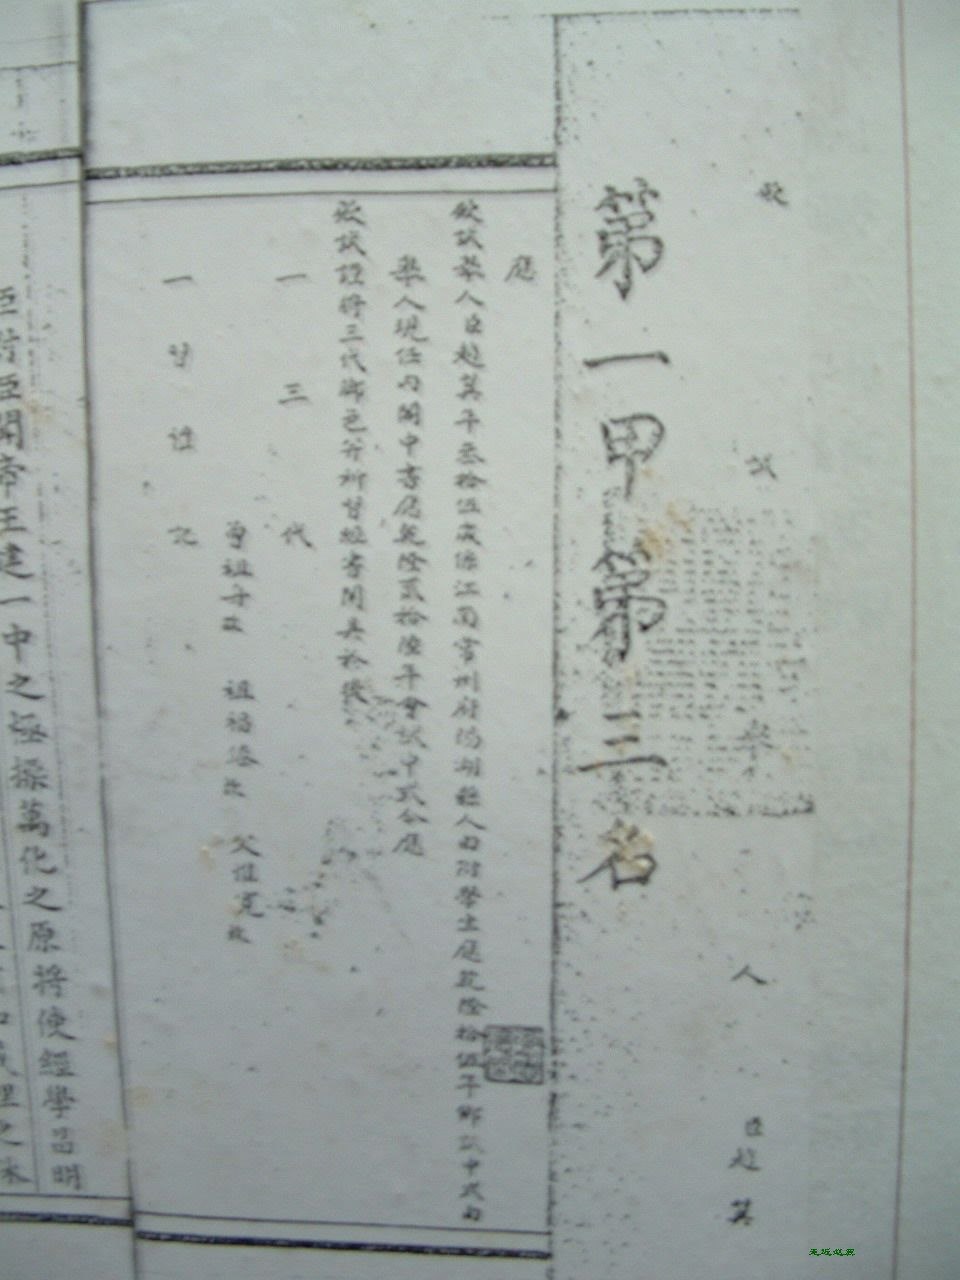 殿試舉人臣趙翼
第一甲第三名
應
殿試舉人臣趙翼年叁拾伍歲係江南常州府陽湖縣人由附學生應乾隆拾伍年鄉試中式由
舉人現任內閣中書應乾隆貳拾陸年會試中式今應
殿試謹將三代鄉邑并所習經書開具於後
一三代
曾祖州故 祖福臻故 父惟寬故
一習禮記
臣對臣聞帝王建一中之極操萬化之原將使經學昌明